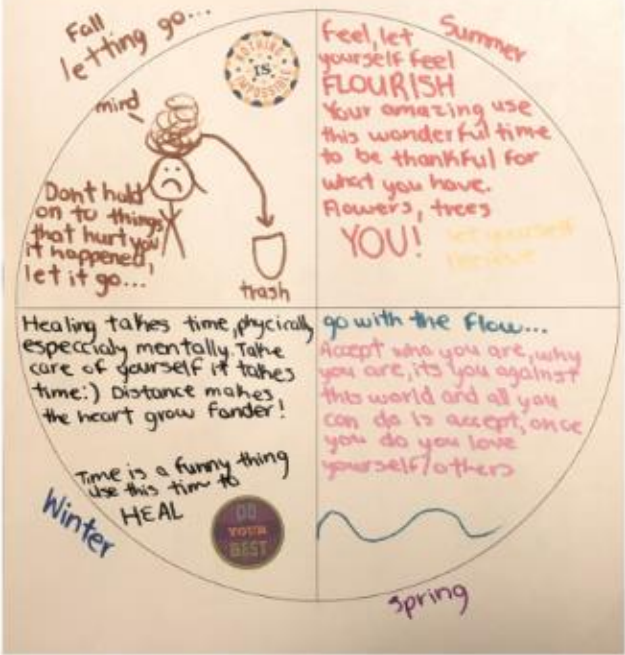 Fall
letting go...
NOTHING
IS
IMPOSSIBLE
mind
Dont hold
on to things
that hurt you
it happened,
let it go...
trash
Summer
Feel, let
yourself feel
FLOURISH
Your amazing use
this wonderful time
to be thankful for
what you have.
Flowers, trees
YOU!
let yourself
Healing takes time, phycically
especcialy mentally. Take
care of yourself it takes
time:) Distance makes
the heart grow fonder!
Time is a funny thing
Use this tim to
HEAL
DO
YOUR
BEST
Winter
go with the flow...
Accept who you are, why
you are, its you against
this world and all you
can do is accept, once
you do you love
yourself/others
Spring